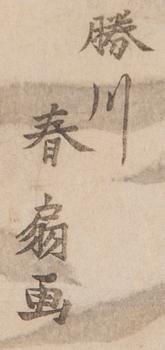 勝川
春扇画